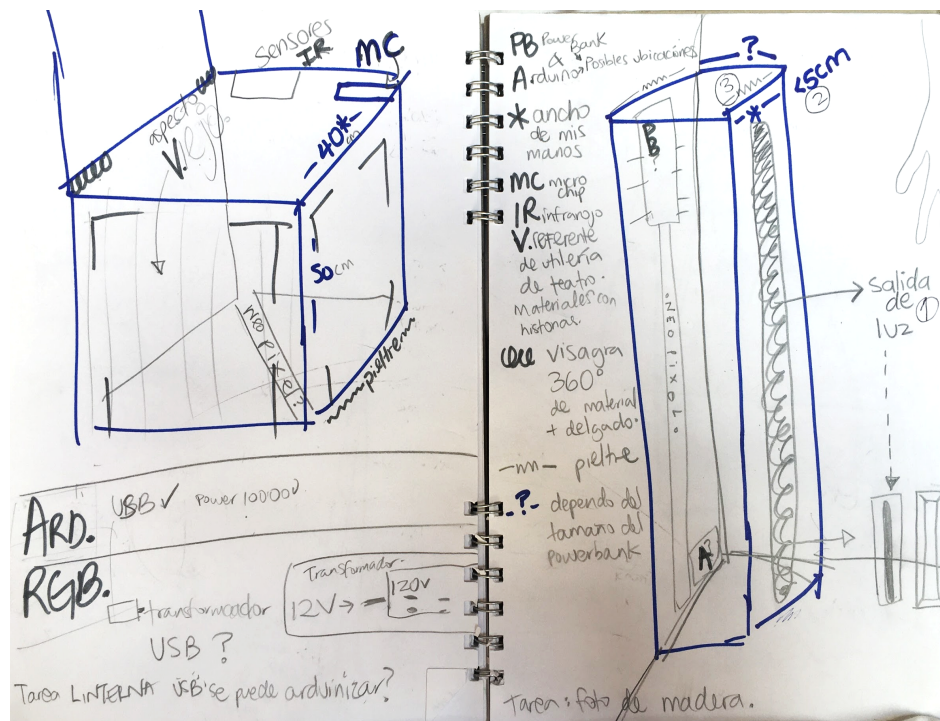 sensores
IR
MC
aspecto
Viejo.
40*
cm
50cm
Neopixel
pieltre
ARD.
USB ✓ Power 10000
RGB.
transformador
USB ?
Transformador.
12V → 120V
Tarea LINTERNA USB se puede arduinizar?
PB Power
Bank
&
Arduino → Posibles ubicaciones
* ancho
de mis
manos
MC micro
chip
IR infrarojo
V. referente
de utilería
de teatro.
materiales con
historias.
visagra
360°
de material
+ delgado.
pieltre
-?- depende del
tamaño del
powerbank
?
<5cm
②
③
*
PB
?
NEOPIXEL
A?
salida
de ①
luz
Tarea: foto de madera.